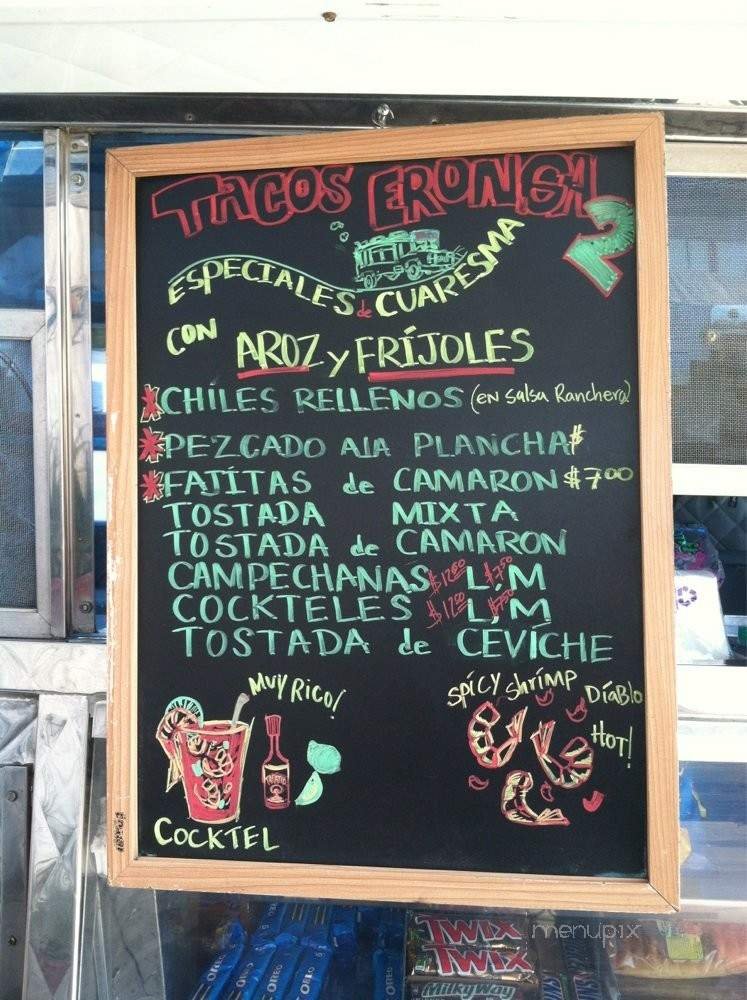 TACOS ERONSA
2
ESPECIALES de CUARESMA
CON AROZ y FRÍJOLES
*CHILES RELLENOS (EN SALSA RANCHERA)
*PEZCADO ALA PLANCHA $
*FAJÍTAS de CAMARON $7.00
TOSTADA MIXTA
TOSTADA de CAMARON
CAMPECHANAS $12.00 L, $7.50 M
COCKTELES $12.00 L, $7.50 M
TOSTADA de CEVÍCHE
MUY RICO!
SPÍCY SHRÍMP DÍABLO
HOT!
TAPATIO
COCKTEL
OREO
OREO
OREO
TWIX
TWIX
MilkyWay
menupix